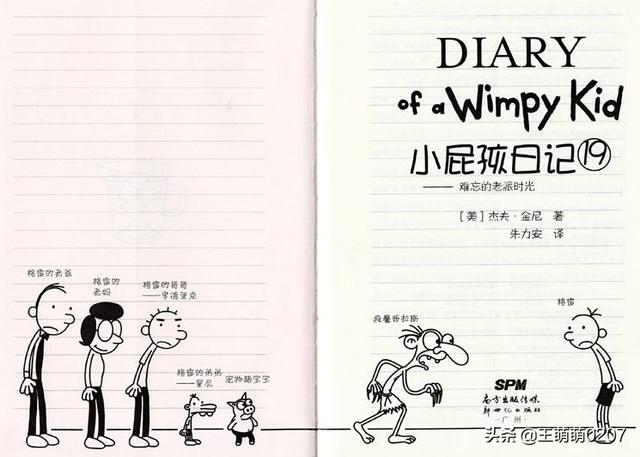 格雷的老爸
格雷的
老妈
格雷的哥哥
——罗德里克
格雷的弟弟
——曼尼
宠物猪宝宝
DIARY
of a Wimpy Kid
小屁孩日记⑲
—— 难忘的老派时光
[美] 杰夫·金尼 著
朱力安 译
疯魔西拉斯
格雷
SPM
南方出版传媒
新世纪出版社
·广州·
头条@王萌萌0207